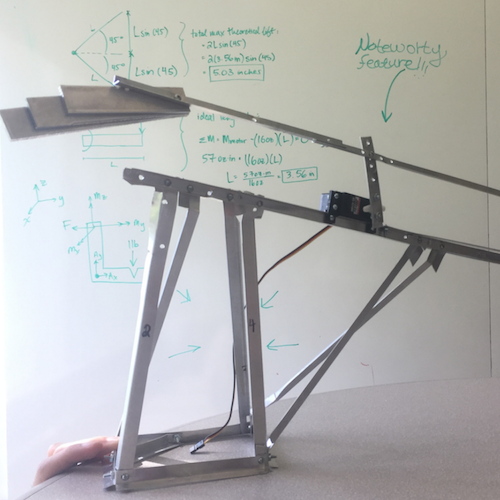 45°
45°
L
Lsin(45)
Lsin(45)
total max theoretical lift.
= 2Lsin(45)
= 2(3.56in)sin(45)
= 5.03 inches
Noteworthy
feature!!!
ideal
ΣM = Mmotor - (16oz)(L) =
57 oz in = (16oz)(L)
L = = 3.56 in
L
z
y
x
Mz
F
My
Mx
1lb
2